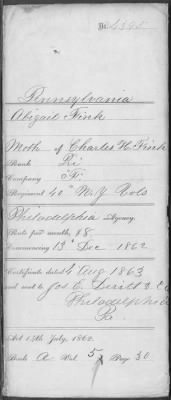 No. 4395
Pennsylvania
Abigail Fink
Moth of Charles H. Fink
Rank Pri
Company
Regiment 40" N.J. Vols
Philadelphia Agency.
Rate per month, $8
Commencing 13" Dec 1862
Certificate dated 4 Aug 1863
and sent to Jos E.
Philadelphia
Pa.
Act 14th July, 1862.
Book A Vol 5 Page 30